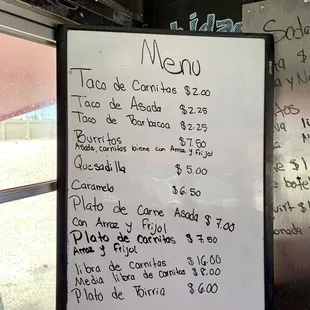 Menu
Taco de Carnitas $2.00
Taco de Asada $2.25
Taco de Barbacoa $2.25
Burritos $7.50
Asada, carnitas biene con Arroz y Frijol
Quesadilla $5.00
Caramelo $6.50
Plato de Carne Asada $7.00
con Arroz y Frijol
Plato de carnitas $7.50
Arroz y Frijol
libra de Carnitas $16.00
Media libra de carnitas $8.00
Plato de Birria $6.00
Soda